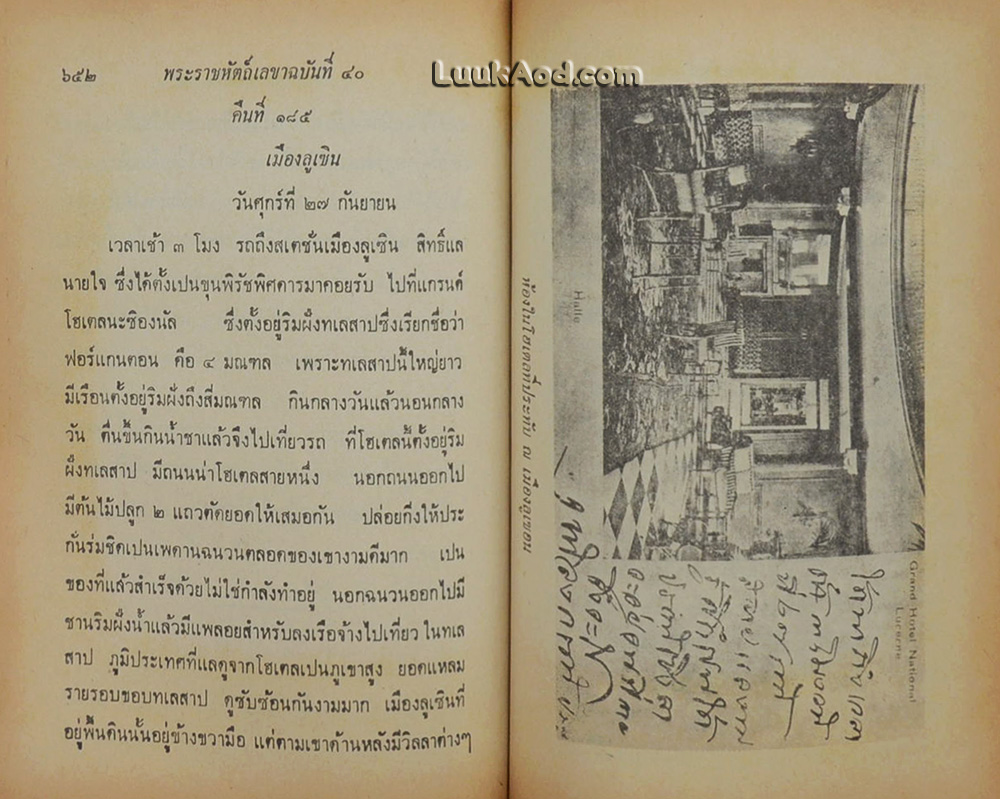 ๖๕๒ พระราชหัตถ์เลขาฉบันที่ ๔๐
LuukAod.com
คืนที่ ๑๘๕
เมืองลูเซิน
วันศุกร์ที่ ๒๗ กันยายน
เวลาเช้า ๓ โมง รถถึงสเตชั่นเมืองลูเซิน สิทธิ์แล
นายใจ ซึ่งได้ตั้งเปนขุนพิรัชพิศดารมาคอยรับ ไปที่แกรนด์
โฮเตลนะซิองนัล ซึ่งตั้งอยู่ริมฝั่งทเลสาปซึ่งเรียกชื่อว่า
ฟอร์แกนตอน คือ ๔ มณฑล เพราะทเลสาปนี้ใหญ่ยาว
มีเรือนตั้งอยู่ริมฝั่งถึงสี่มณฑล กินกลางวันแล้วนอนกลาง
วัน ตื่นขึ้นกินน้ำชาแล้วจึงไปเที่ยวรถ ที่โฮเตลนี้ตั้งอยู่ริม
ฝั่งทเลสาป มีถนนน่าโฮเตลสายหนึ่ง นอกถนนออกไป
มีต้นไม้ปลูก ๒ แถวตัดยอดให้เสมอกัน ปล่อยกิ่งให้ประ
กั่นร่มชิดเปนเพดานฉนวนตลอดของเขางามดีมาก เปน
ของที่แล้วสำเร็จด้วยไม่ใช่กำลังทำอยู่ นอกฉนวนออกไปมี
ชานริมฝั่งน้ำแล้วมีแพลอยสำหรับลงเรือจ้างไปเที่ยว ในทเล
สาป ภูมิประเทศที่แลดูจากโฮเตลเปนภูเขาสูง ยอดแหลม
รายรอบขอบทเลสาป ดูซับซ้อนกันงามมาก เมืองลูเซินที่
อยู่พื้นดินนั้นอยู่ข้างขวามือ แต่ตามเขาด้านหลังมีวิลลาต่างๆ
ห้องในโฮเตลที่ประทับ ณ เมืองลูเซอน
Halle
Grand Hotel National
Lucerne